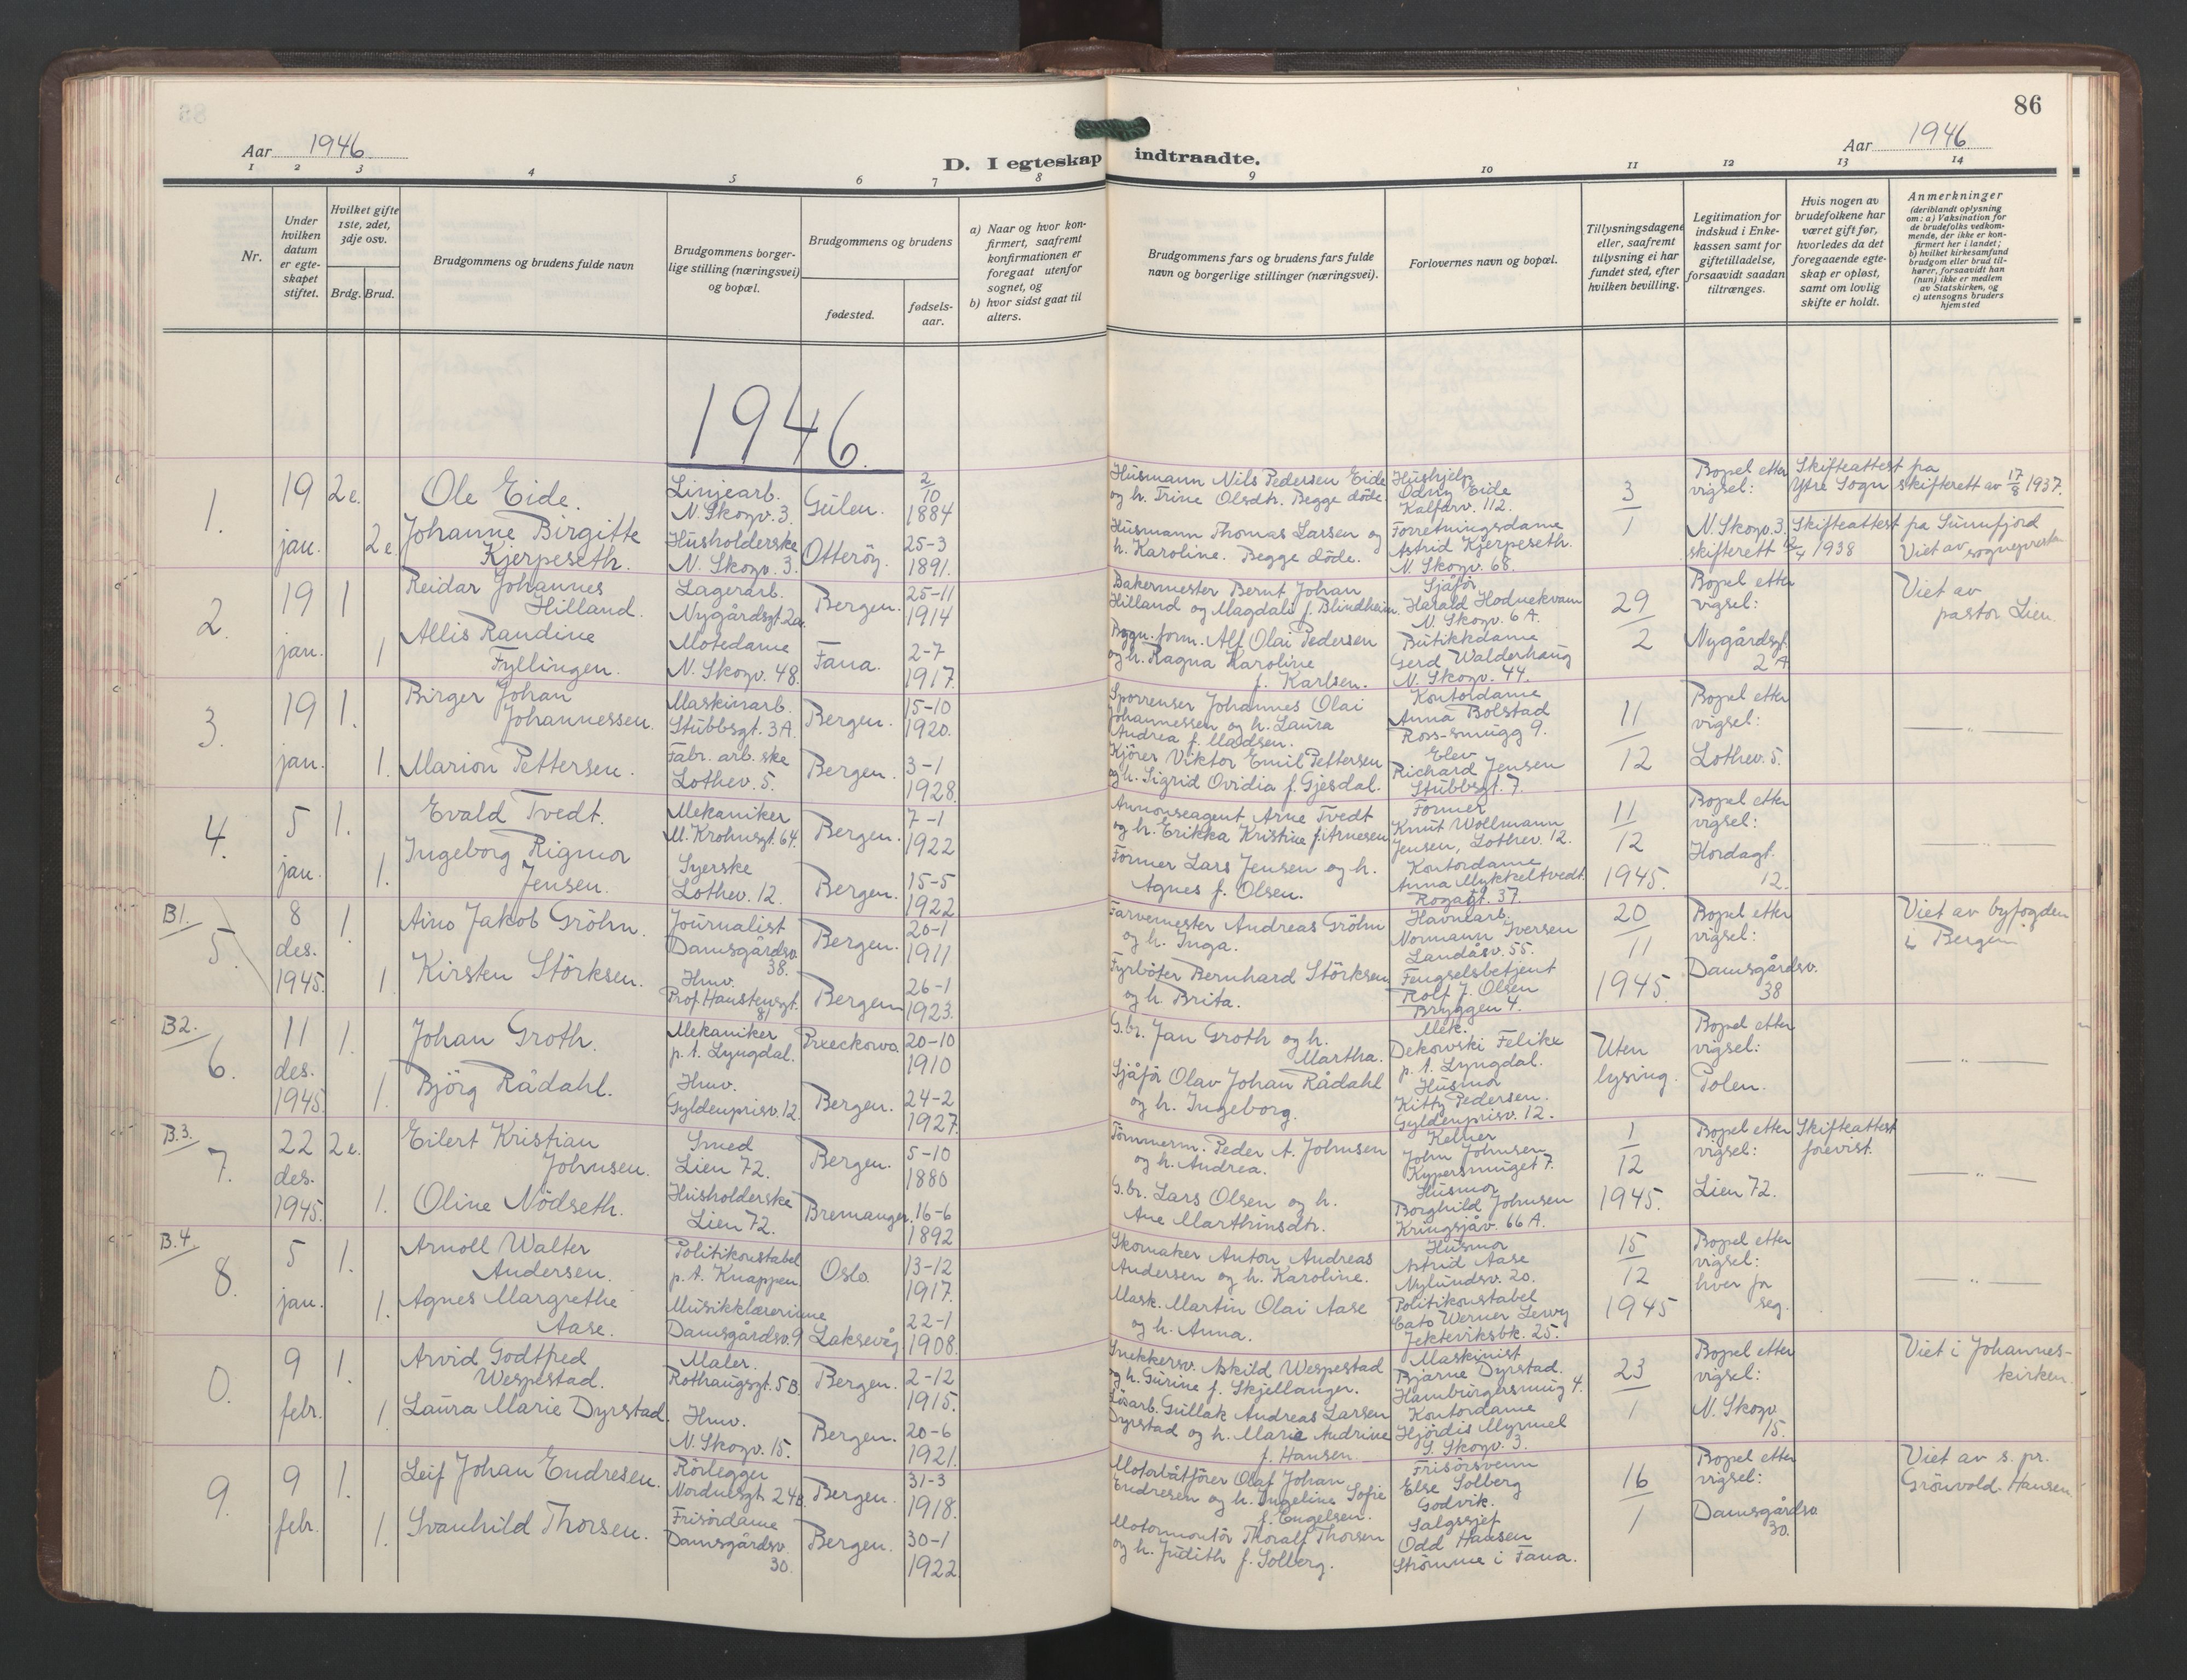 86
Aar 1946
D. I egteskap indtraadte.
Aar 1946
1 2 3 4 5 6 7 8 9 10 11 12 13 14
Nr.
Under hvilken datum er egteskapet stiftet.
Hvilket gifte 1ste, 2det, 3dje osv.
Brdg. Brud.
Brudgommens og brudens fulde navn
Brudgommens borgerlige stilling (næringsvei) og bopæl.
Brudgommens og brudens
fødested.
fødselsaar.
a) Naar og hvor konfirmert, saafremt konfirmationen er foregaat utenfor sognet, og
b) hvor sidst gaat til alters.
Brudgommens fars og brudens fars fulde navn og borgerlige stillinger (næringsvei).
Forlovernes navn og bopæl.
Tillysningsdagene eller, saafremt tillysning ei har fundet sted, efter hvilken bevilling.
Legitimation for indskud i Enkekassen samt for giftetilladelse, forsaavidt saadan tiltrænges.
Hvis nogen av brudefolkene har været gift før, hvorledes da det foregaaende egteskap er opløst, samt om lovlig skifte er holdt.
Anmerkninger (deriblandt oplysning om: a) Vaksination for de brudefolks vedkommende, der ikke er konfirmert her i landet; b) hvilket kirkesamfund brudgom eller brud tilhører, forsaavidt han (hun) ikke er medlem av Statskirken, og c) utensogns bruders hjemsted
1946.
1. 19 jan. 2e. Ole Eide. Linjearb. N. Skogv. 3. Gulen. 2/10 1884
Husmann Nils Pedersen Eide og h. Trine Olsdtr. Begge døde. Hushjelp Odny Eide Kalfarv. 112.
3/1 Bopel etter vigsel: N. Skogv. 3. Skifteattest fra Ytre Sogn skifterett av 17/8 1937.
2e. Johanne Birgitte Kjerpeseth. Husholderske N. Skogv. 3. Otterøy. 25-3 1891.
Husmann Thomas Larsen og h. Karoline. Begge døde. Forretningsdame Astrid Kjerpeseth. N. Skogv. 68.
Skifteattest fra Sunnfjord skifterett 1938 Viet av sognepresten
2. 19 jan. 1 Reidar Johannes Hilland. Lagerarb. Nygårdsgt. 2a. Bergen. 25-11 1914
Bakermester Bernt Johan Hilland og Magdali f. Blindheim. Sjåfør Harald Hodnekvam N. Skogv. 6 A.
29/2 Bopel etter vigsel: Nygårdsgt. 2 A Viet av pastor Lien.
1 Allis Randine Fyllingen. Motedame N. Skogv. 48. Fana. 2-7 1917.
Bygn. form. Alf Olai Pedersen og h. Ragna Karoline f. Karlsen. Butikkdame Gerd Walderhaug N. Skogv. 44.
3. 19 jan. 1. Birger Johan Johannessen. Maskinarb. Stubbsgt. 3A. Bergen. 15-10 1920.
Sporrenser Johannes Olai Johannessen og h. Laura Andrea f. Madsen. Kontordame Anna Bolstad Ross-smugg 9.
11/12 Bopel etter vigsel: Lothev. 5. — „ —
1. Marion Pettersen. Fabr. arb. ske Lothev. 5. Bergen. 3-1 1928.
Kjører Viktor Emil Pettersen og h. Sigrid Ovidia f. Gjesdal. Elev Richard Jensen Stubbsgt. 7.
4. 5 jan. 1. Evald Tvedt. Mekaniker M. Krohnsgt. 64. Bergen. 7-1 1922
Annonseagent Arne Tvedt og h. Erikka Kristine f. Arnesen Former Knut Wollmann Jensen, Lothev. 12.
11/12 1945. Bopel etter vigsel: Hordagt. 12. — „ —
1. Ingeborg Rigmor Jensen. Syerske Lothev. 12. Bergen. 15-5 1922
Former Lars Jensen og h. Agnes f. Olsen. Kontordame Anna Mykkeltvedt. Rogagt. 37.
B1. 5. 8 des. 1945. 1. Aino Jakob Gröhn. Journalist Damsgårdsv. 38. Bergen. 20-1 1911
Farvemester Andreas Gröhn og h. Inga. Havnearb. Normann Iversen Landåsv. 55.
20/11 1945. Bopel etter vigsel: Damsgårdsv. 38 Viet av byfogden i Bergen
1 Kirsten Störksen. Hmv. Prof. Hanstensgt. 81 Bergen 26-1 1923.
Fyrböter Bernhard Störksen og h. Brita. Fengselsbetjent Rolf J. Olsen Bryggen 4.
B2. 6. 11 des. 1945 1. Johan Groth. Mekaniker p. t. Lyngdal. Prxeckowo. 20-10 1910
G.br. Jan Groth og h. Martha. Mek. Dekowski Felike p. t. Lyngdal.
Uten lysing. Bopel etter vigsel: Polen. — „ —
1. Bjørg Rådahl. Hmv. Gyldenprisv. 12. Bergen. 24-2 1927.
Sjåfør Olav Johan Rådahl og h. Ingeborg. Husmor Kitty Pedersen. Gyldenprisv. 12.
B.3. 7. 22 des. 1945. 2e. Eilert Kristian Johnsen. Smed Lien 72. Bergen. 5-10 1880
Tømmerm. Peder A. Johnsen og h. Andrea. Kelner John Johnsen Kypersmuget 7.
1/12 1945. Bopel etter vigsel: Lien 72. Skifteattest forevist. — „ —
1. Oline Nödseth. Husholderske Lien 72. Bremanger. 16-6 1892
G.br. Lars Olsen og h. Ane Marthinsdtr. Husmor Borghild Johnsen Kringsjåv. 66 A.
B.4. 8. 5 jan. 1. Arnoll Walter Andersen. Politikonstabel p. t. Knappen. Oslo. 13-12 1917.
Skomaker Anton Andreas Andersen og h. Karoline. Husmor Astrid Aase Nylundsv. 20.
15/12 1945 Bopel etter vigsel: hver for seg. — „ —
1. Agnes Margrethe Aase. Musikklærerinne Damsgårdsv. 9 Laksevåg 22-1 1908.
Mask. Martin Olai Aase og h. Anna. Politikonstabel Cato Werner Lewy Jekteviksbk. 25.
0. 9 febr. 1. Arvid Godtfred Wespestad. Maler. Rothaugsgt. 5B. Bergen. 2-12 1915.
Snekkersv. Askild Wespestad og h. Gurine f. Skjellanger. Maskinist Bjarne Dyrstad. Hamburgersmug 4.
23/1 Bopel etter vigsel: N. Skogv. 15. Viet i Johanneskirken.
1. Laura Marie Dyrstad. Hmv. N. Skogv. 15. Bergen. 20-6 1921.
Løsarb. Gullak Andreas Larsen Dyrstad og h. Marie Audrine f. Hansen. Kontordame Hjørdis Myrmel S. Skogv. 3.
9. 9 febr. 1. Leif Johan Endresen. Rørlegger Nordnesgt. 24 Bergen. 31-3 1918.
Motorbåtfører Olaf Johan Endresen og h. Ingeline Sofie f. Engelsen. Frisørsvenn Else Solberg Godvik.
16/1 Bopel etter vigsel: Damsgårdsv. 30. Viet av s. pr. Grönvold-Hansen
1. Svanhild Thorsen. Frisørdame Damsgårdsv. 30. Bergen. 30-1 1922
Motormontør Thoralf Thorsen og h. Judith f. Solberg. Salgssjef Odd Hansen Strømme i Fana.